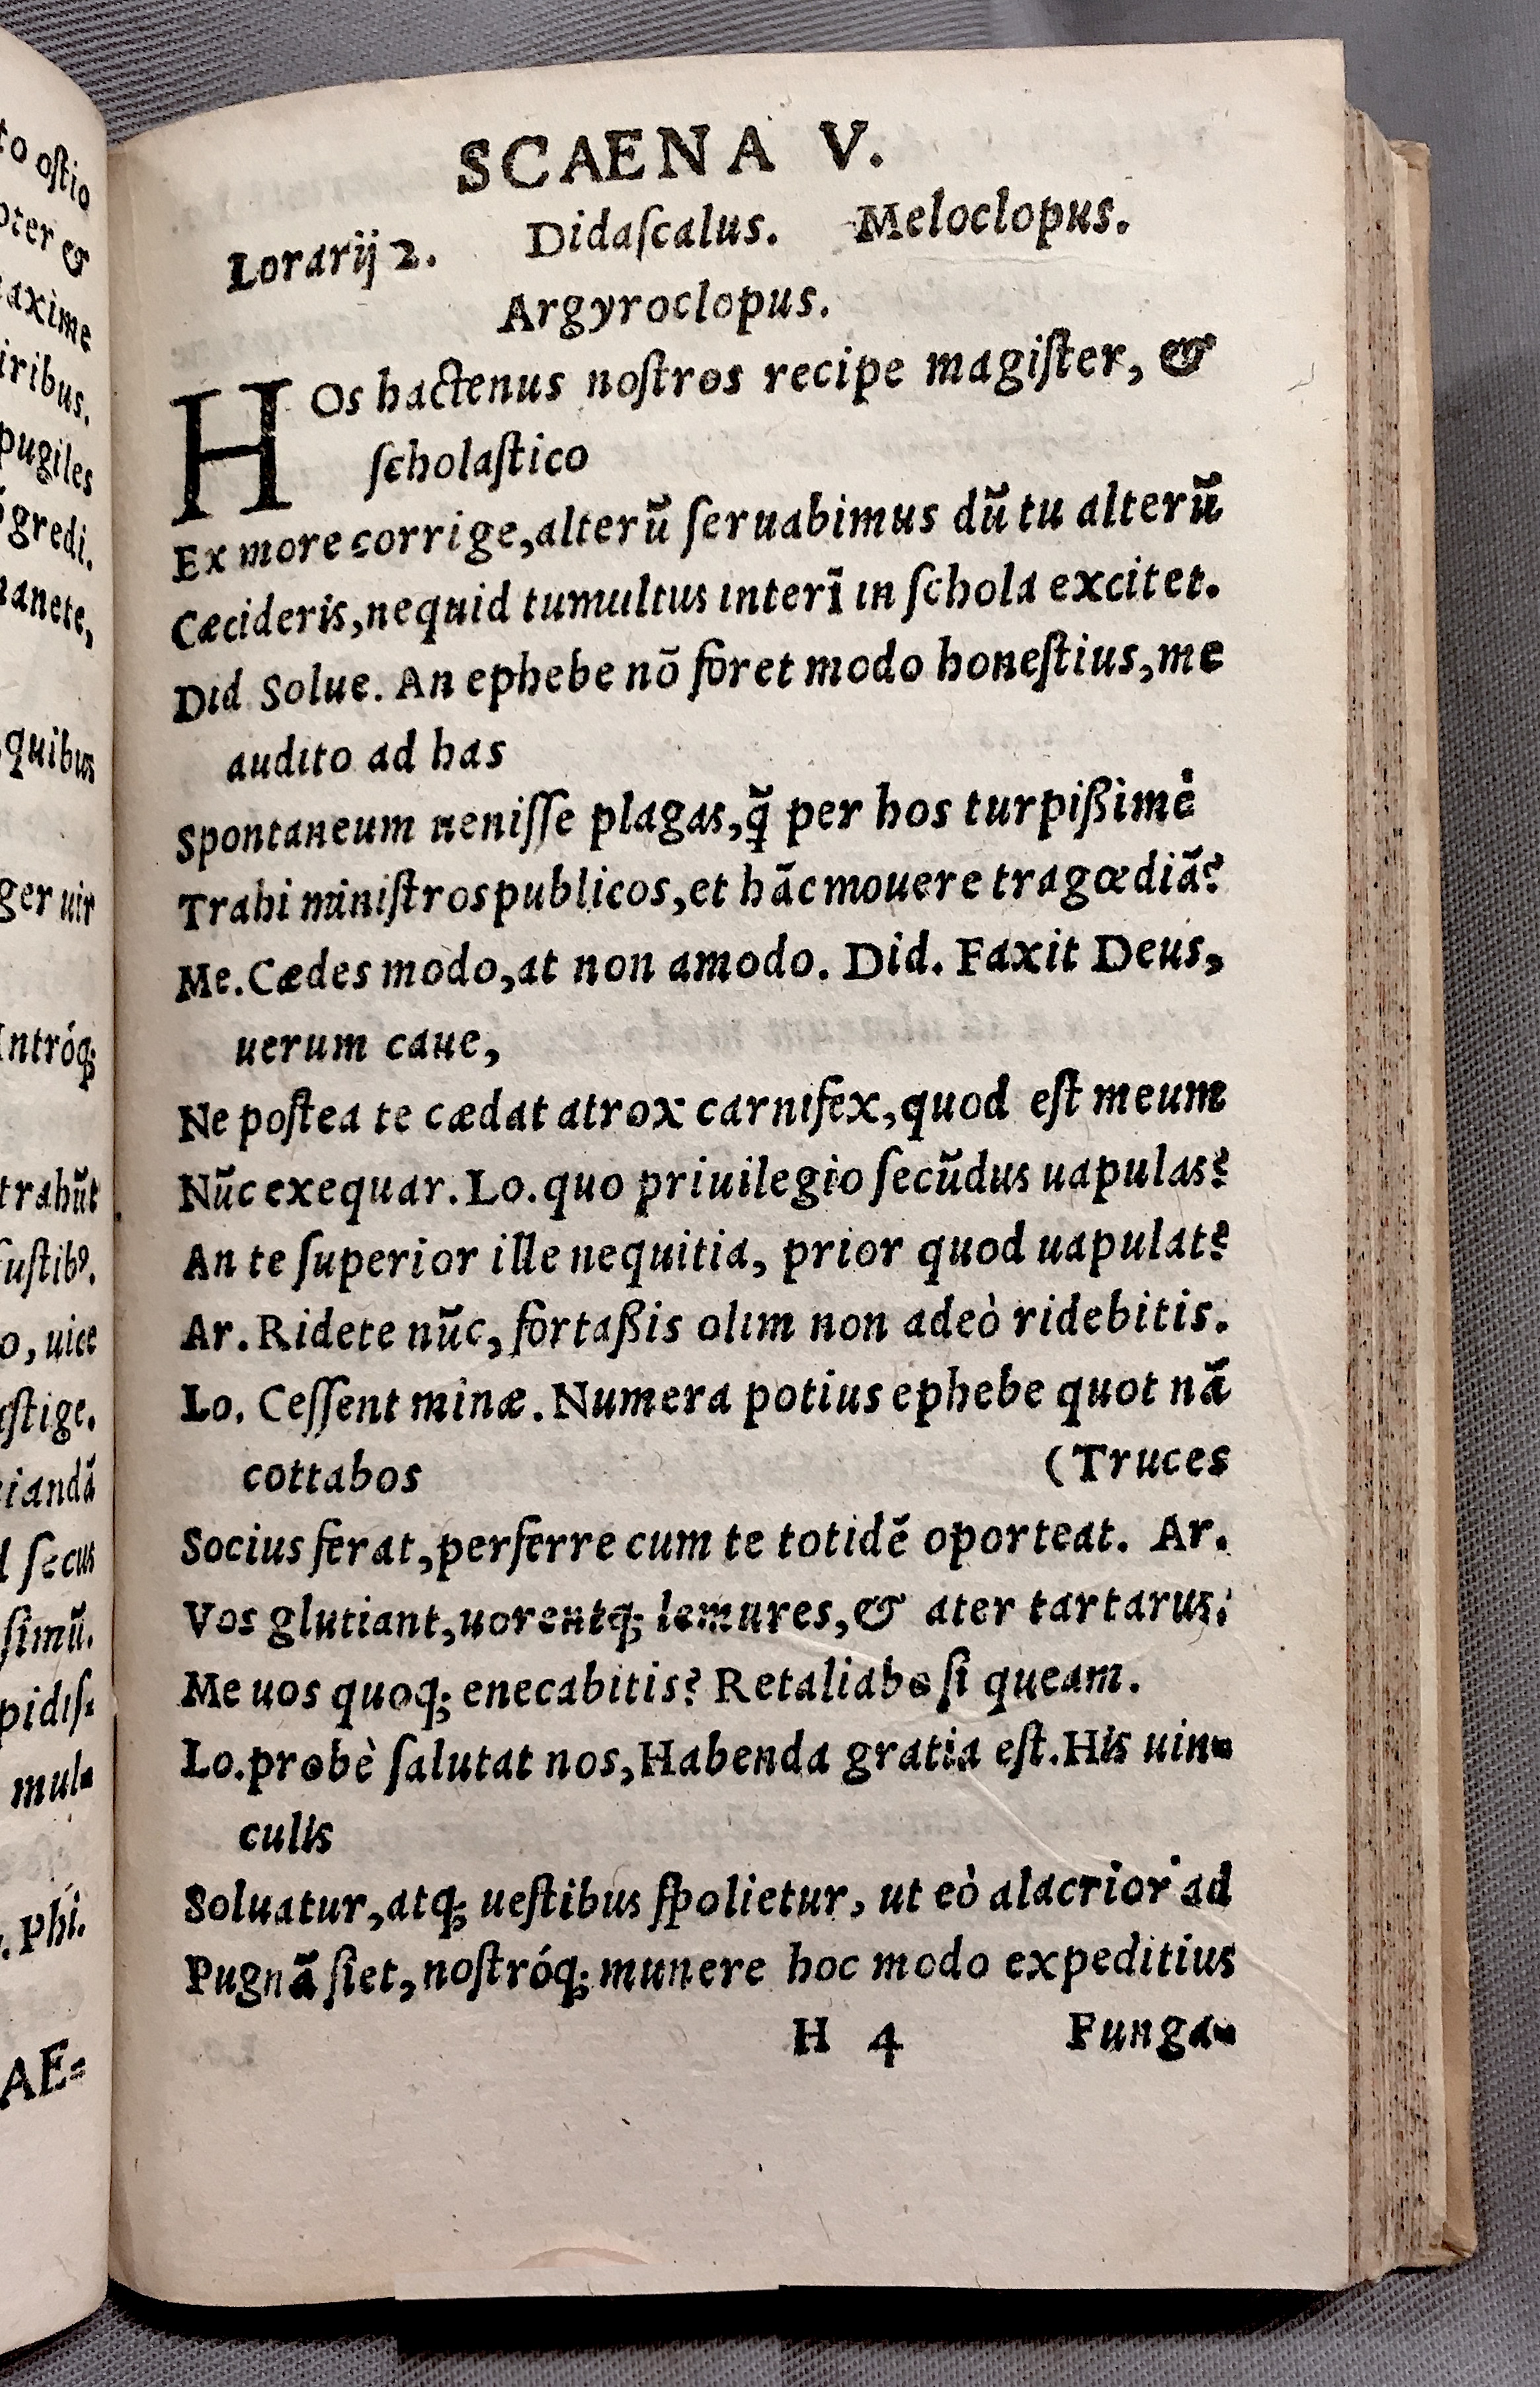 to ostio
pter &
axime
iribus.
pugiles
gredi.
manete,
quibus
ger uir
Intróq;
trahũt
fustibꝰ.
o, uice
stige.
iandã
l secus
simũ.
pidis⸗
mul⸗
. Phi.
AE⸗
SCAENA V.
Lorarij 2. Didaſcalus. Meloclopus.
Argyroclopus.
HOs hactenus noſtros recipe magiſter, &
ſcholaſtico
Ex more corrige, alterũ ſeruabimus dũ tu alterũ
Cæcideris, nequid tumultus interĩ in ſchola excitet.
Did Solue. An ephebe nõ foret modo honeſtius, me
audito ad has
Spontaneum ueniſſe plagas, q̃ per hos turpißimè
Trahi miniſtros publicos, et hãc mouere tragœdiã?
Me. Cædes modo, at non amodo. Did. Faxit Deus,
uerum caue,
Ne poſtea te cædat atrox carnifex, quod eſt meum
Nũc exequar. Lo. quo priuilegio ſecũdus uapulas?
An te ſuperior ille nequitia, prior quod uapulat?
Ar. Ridete nũc, fortaßis olim non adeò ridebitis.
Lo. Ceſſent minæ. Numera potius ephebe quot nã
cottabos (Truces
Socius ferat, perferre cum te totidẽ oporteat. Ar.
Vos glutiant, uorentq; lemures, & ater tartarus;
Me uos quoq; enecabitis? Retaliabo ſi queam.
Lo. probè ſalutat nos, Habenda gratia eſt. His uin⸗
culis
Soluatur, atq; ueſtibus ſpolietur, ut eò alacrior ad
Pugnã ſiet, noſtróq; munere hoc modo expeditius
H 4 Funga⸗